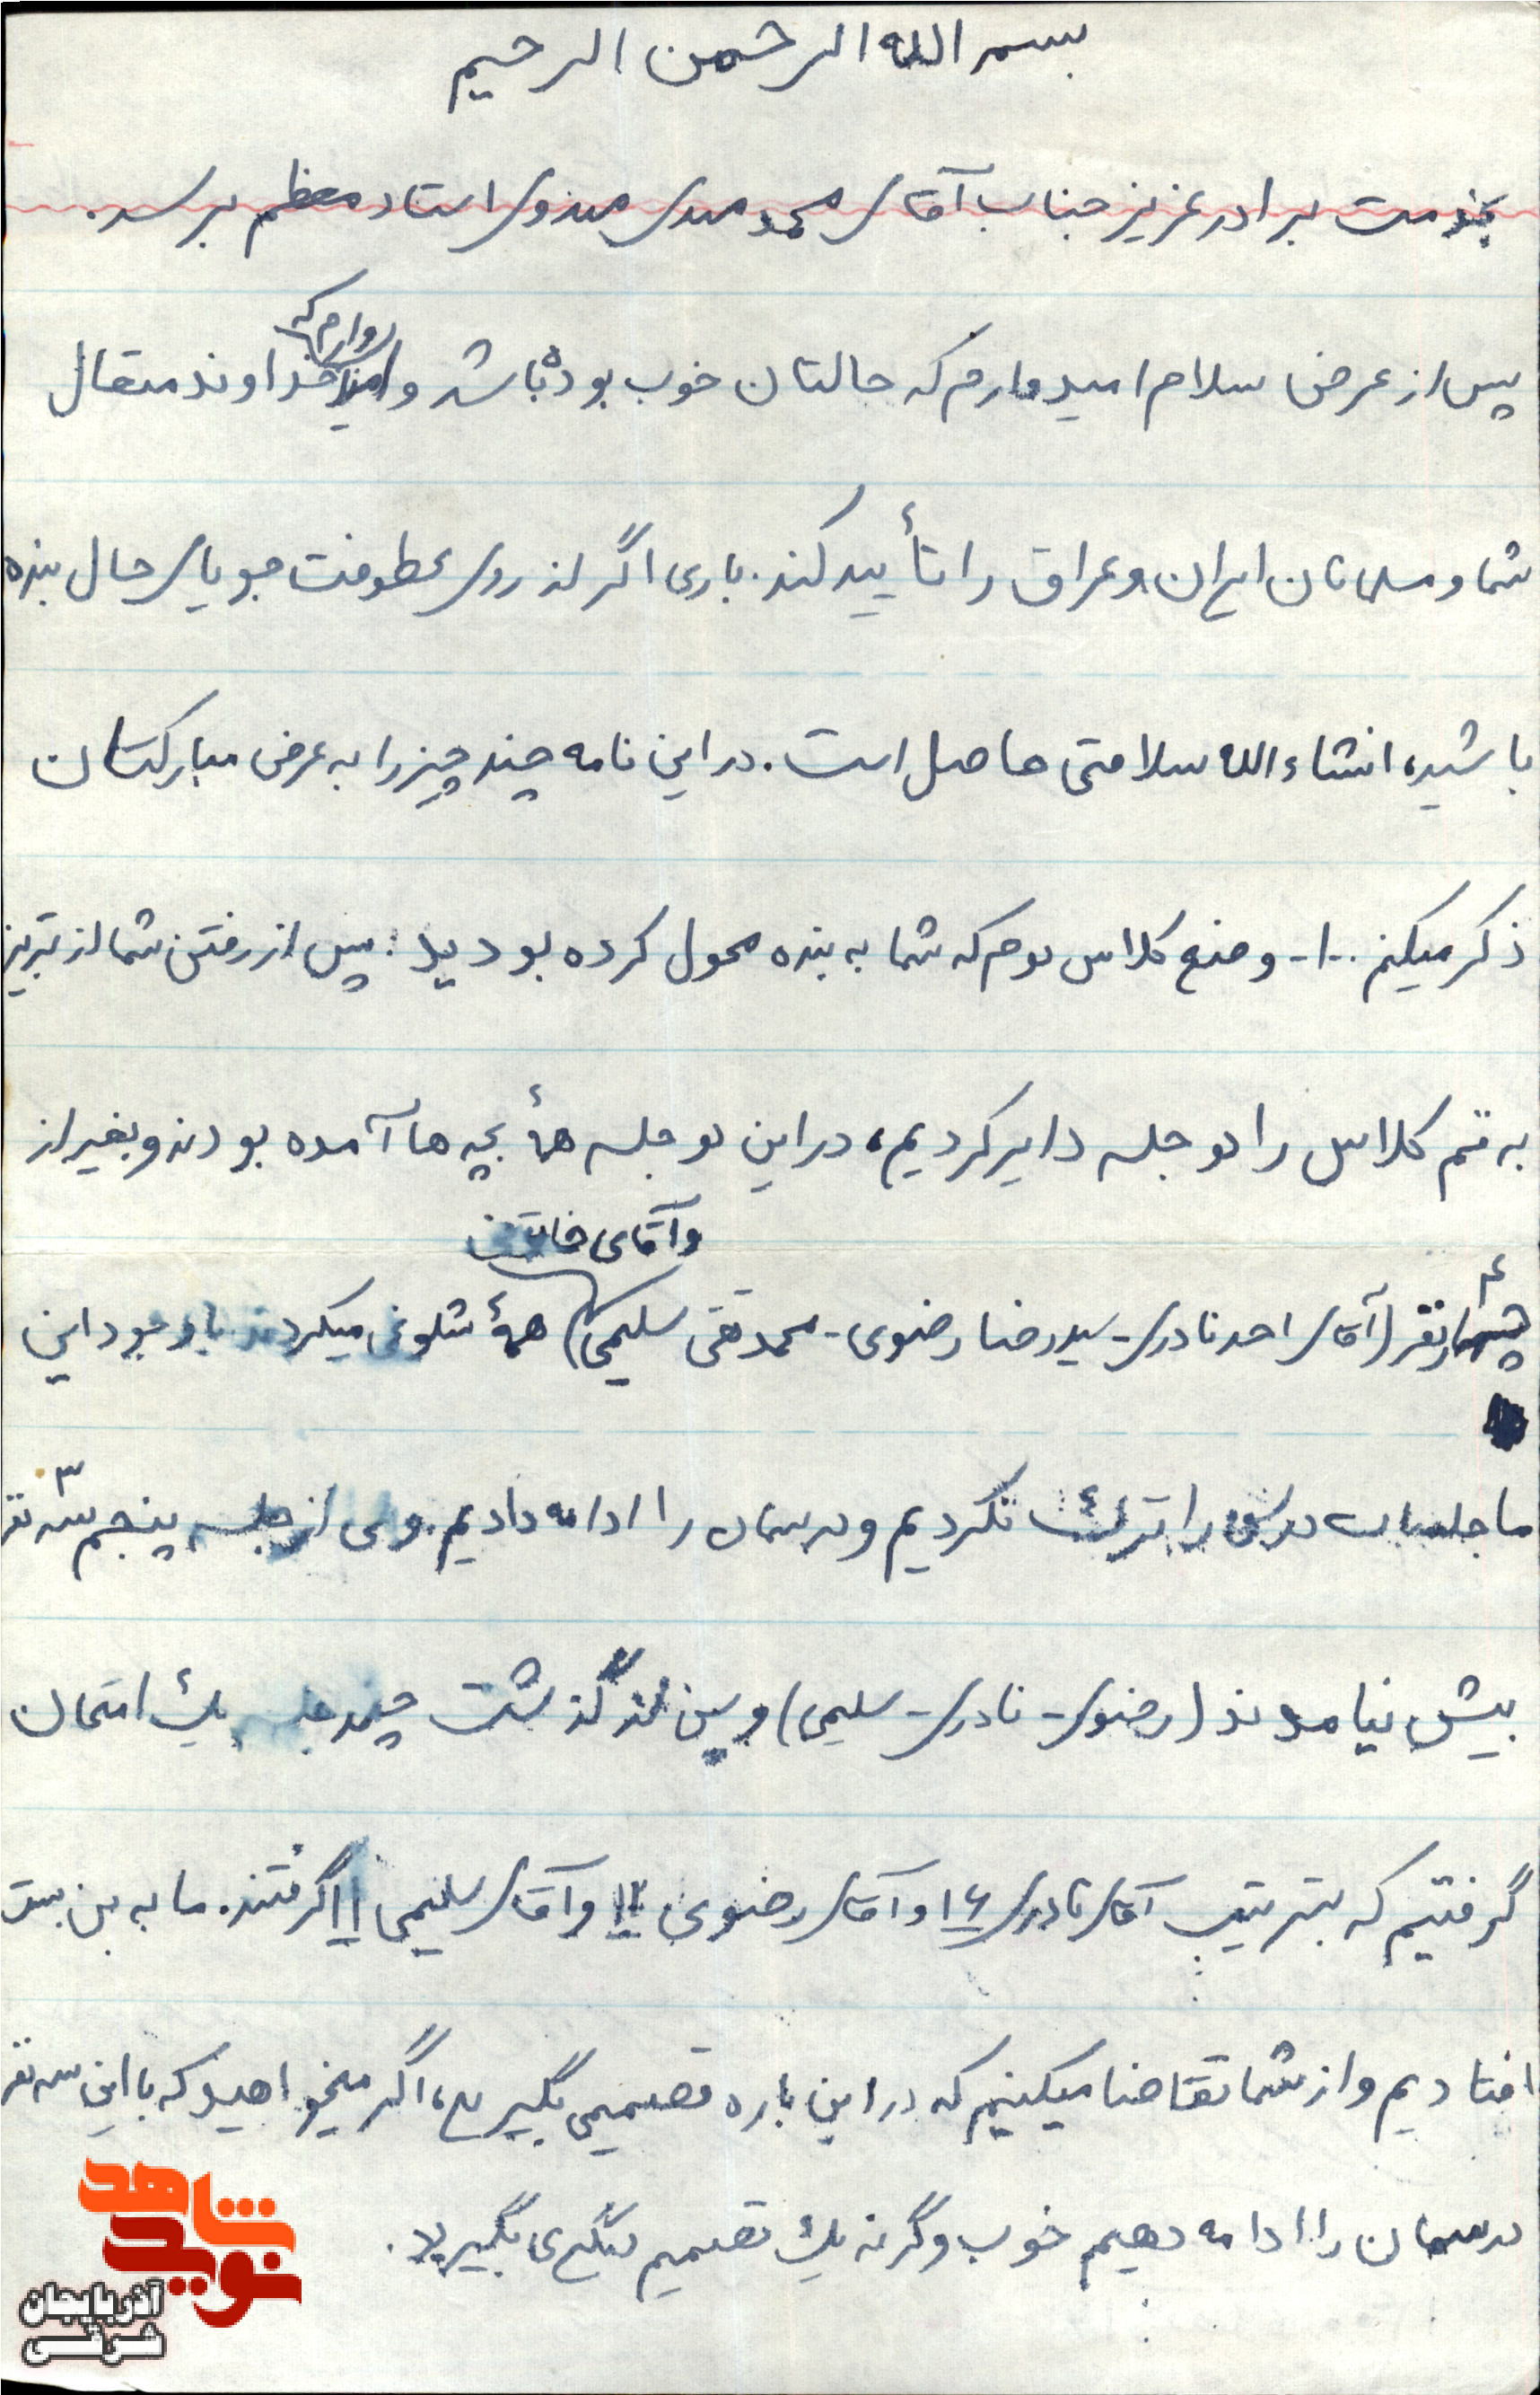 بسم الله الرحمن الرحیم
بخدمت برادر عزیز جناب آقای محمد مهدی استاد معظم برسد.
پس از عرض سلام امیدوارم که حالتان خوب بوده باشد و امیدوارم که خداوند متعال
شما و مسلمانان ایران و عراق را تأیید کند. باری اگر از روی عطوفت جویای حال بنده
باشید، انشاءالله سلامتی حاصل است. در این نامه چند چیز را به عرض مبارکتان
ذکر میکنم ۱- وضع کلاس دوم که شما به بنده محول کرده بودید: پس از رفتن شما از تبریز
به قم کلاس را دو جلسه دایر کردیم، در این دو جلسه همهٔ بچه ها آمده بودند و بغیر از
وآقای
۴ نفر (آقای احد نادری - سیدرضا رضوی - محمدتقی سلیمی) همهٔ شلوغی میکردند. با وجود این
ما جلسات درس را ترک نکردیم و درسمان را ادامه دادیم. ولی از جلسه پنجم ۳ سه نفر
بیش نیامدند (رضوی - نادری - سلیمی) و پس از گذشت چند جلسه یک امتحان
گرفتیم که بترتیب آقای نادری ۱۶ و آقای رضوی ۱۲ و آقای سلیمی ۱۱ گرفتند. ما به بن بست
افتادیم و از شما تقاضا میکنیم که در این باره تصمیمی بگیرید، اگر میخواهید که با این سه نفر
درسمان را ادامه دهیم خوب وگرنه یک تصمیم دیگری بگیرید.
نوید شاهد
آذربایجان
شرقی